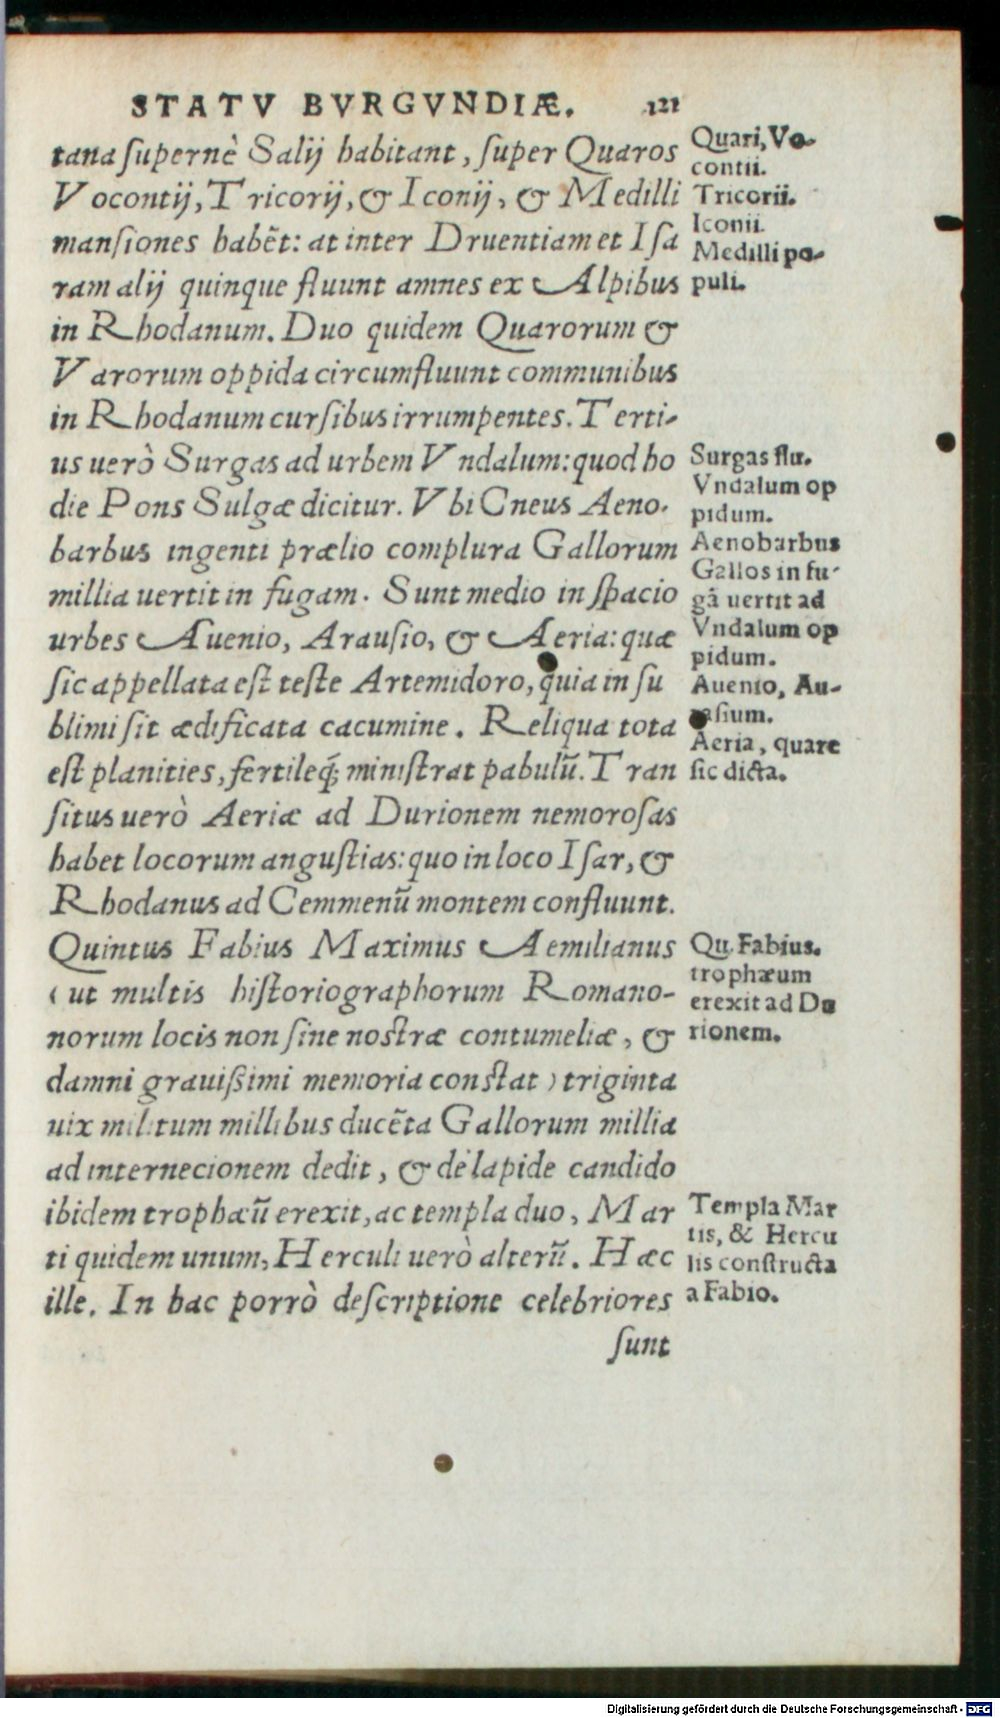 STATV BVRGVNDIÆ. 121
tana supernè Salij habitant, super Quaros
Vocontij, Tricorij, & Iconij, & Medilli
mansiones habẽt: at inter Druentiam et Isa
ram alij quinque fluunt amnes ex Alpibus
in Rhodanum. Duo quidem Quarorum &
Varorum oppida circumfluunt communibus
in Rhodanum cursibus irrumpentes. Terti-
us uerò Surgas ad urbem Vndalum: quod ho
die Pons Sulgæ dicitur. Vbi Cneus Aeno-
barbus ingenti prælio complura Gallorum
millia uertit in fugam. Sunt medio in spacio
urbes Auenio, Arausio, & Aeria: quæ
sic appellata est teste Artemidoro, quia in su
blimi sit ædificata cacumine. Reliqua tota
est planities, fertileq́; ministrat pabulũ. Tran
situs uerò Aeriæ ad Durionem nemorosas
habet locorum angustias: quo in loco Isar, &
Rhodanus ad Cemmenũ montem confluunt.
Quintus Fabius Maximus Aemilianus
(ut multis historiographorum Romano-
norum locis non sine nostræ contumeliæ, &
damni grauissimi memoria constat) triginta
uix militum millibus ducẽta Gallorum millia
ad internecionem dedit, & de lapide candido
ibidem trophæũ erexit, ac templa duo, Mar
ti quidem unum, Herculi uerò alterũ. Hæc
ille. In hac porrò descriptione celebriores
sunt
Quari, Vo-
contii.
Tricorii.
Iconii.
Medilli po-
puli.
Surgas flu.
Vndalum op
pidum.
Aenobarbus
Gallos in fu-
gã uertit ad
Vndalum op
pidum.
Auenio, Au-
rasium.
Aeria, quare
sic dicta.
Qu. Fabius.
trophæum
erexit ad Du
rionem.
Templa Mar
tis, & Hercu
lis constructa
a Fabio.
Digitalisierung gefördert durch die Deutsche Forschungsgemeinschaft - DFG